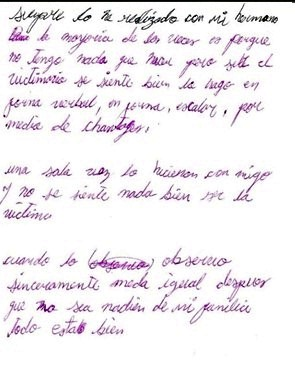 siempre lo he realizado con mi hermano
la mayoria de las veces es porque
no tengo nada que hacer pero si el
victimario se siente bien lo hago en
forma verbal, en forma, escalar, por
medio de chantajes.
una sola vez lo hicieron con migo
y no se siente nada bien ser la
victima
cuando lo observo
sinceramente meda igual despues
que no sea nadien de mi familia
todo esta bien